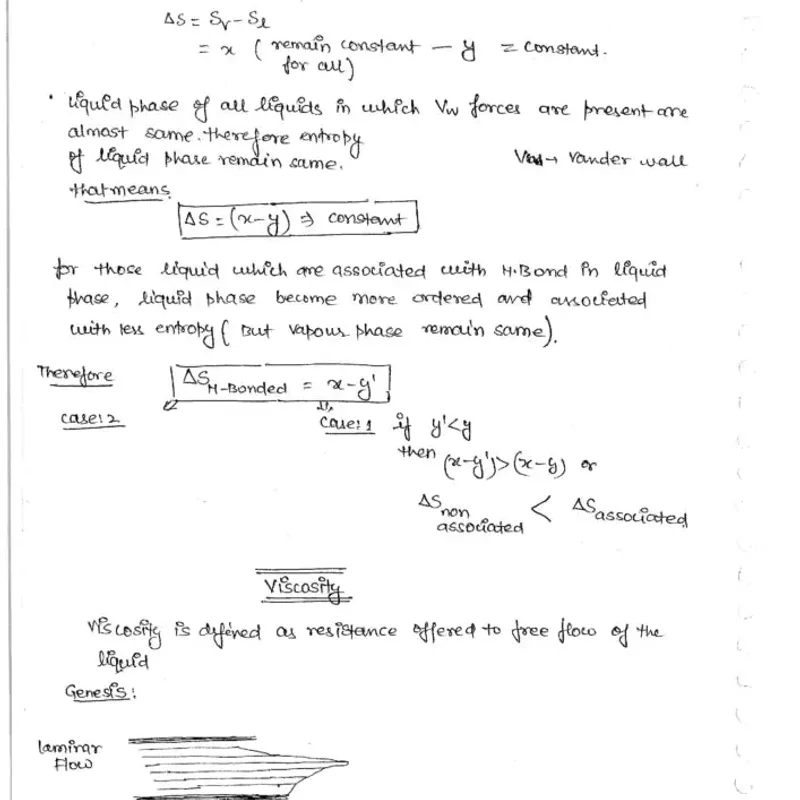 ΔS = Sv - Sl
= x ( remain constant - y = constant.
for all)
• liquid phase of all liquids in which Vw forces are present are
almost same. therefore entropy
of liquid phase remain same. → vander wall
that means
ΔS = (x-y) ⇒ constant
for those liquid which are associated with H.Bond in liquid
phase, liquid phase become more ordered and associated
with less entropy ( But vapour phase remain same).
Therefore ΔS H-Bonded = x-y'
case: 2 case: 1 if y'<y
then (x-y') > (x-y) or
ΔS non associated < ΔS associated
Viscosity
Viscosity is defined as resistance offered to free flow of the
liquid
Genesis:
laminar
Flow